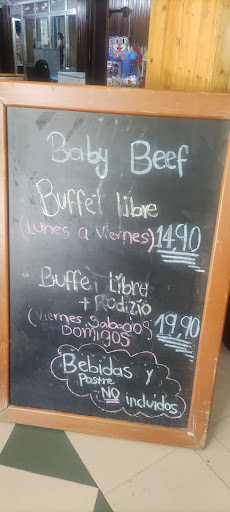 Baby Beef
Buffet libre
(Lunes a Viernes) 14,90
Buffet Libre
+ Rodizio
(Viernes Sabados 19,90
Domigos
Bebidas y
Postre
NO incluidos